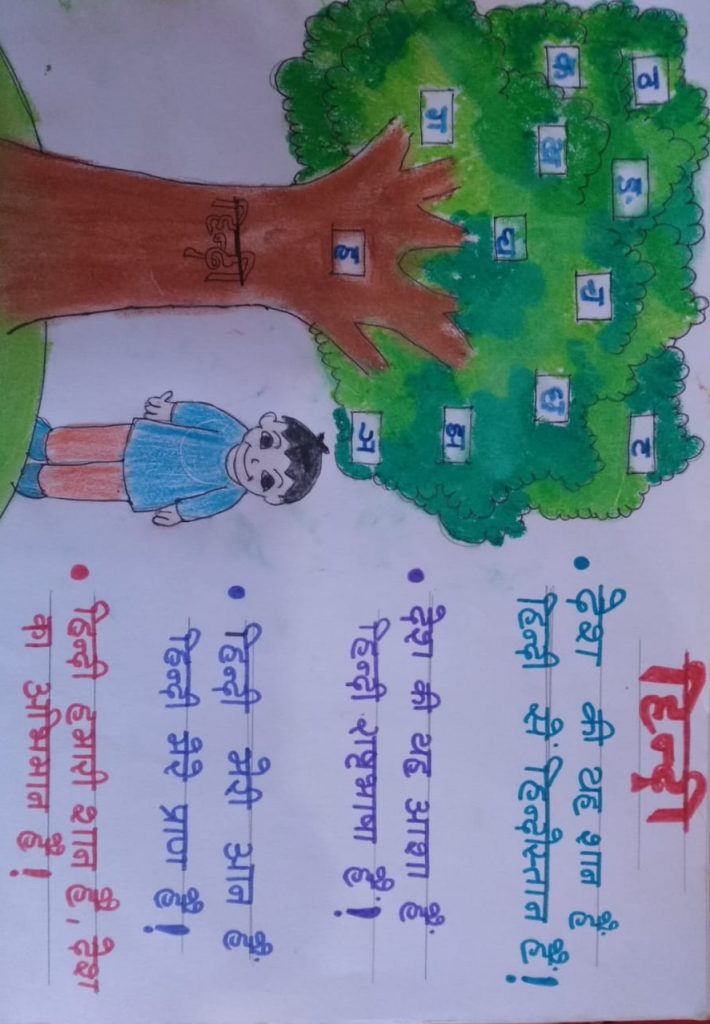 हिन्दी
ठ
ट
ङ
च
क
ख
छ
घ
झ
ग
ञ
ह
हिन्दी
• देश की यह शान हैं
हिन्दी से हिन्दोस्तान हैं!
• देश की यह आशा हैं
हिन्दी राष्ट्रभाषा हैं!
• हिन्दी मेरी आन हैं
हिन्दी मेरे प्राण हैं!
• हिन्दी हमारी शान है, देश
का अभिमान हैं!